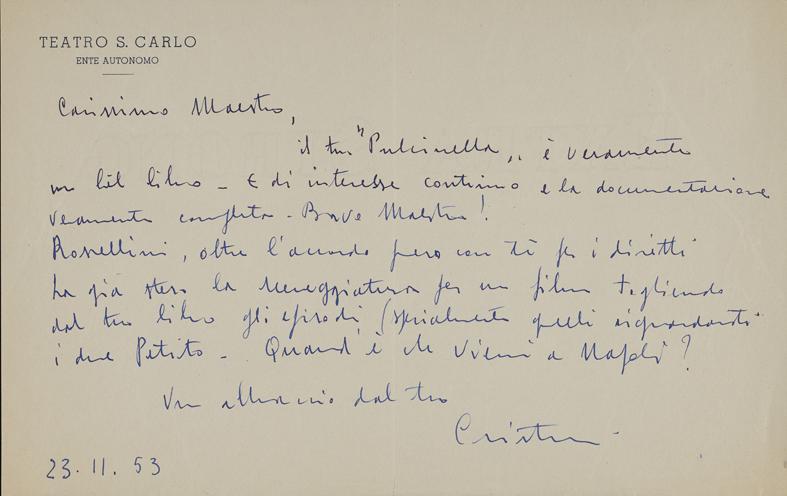 TEATRO S. CARLO
ENTE AUTONOMO
Carissimo Maestro,
il tuo "Pulcinella„ è veramente
un bel libro - E di interesse continuo e la documentazione
veramente completa - Bravo Maestro!
Rossellini, oltre l'accordo preso con te per i diritti
ha già steso la sceneggiatura per un film togliendo
dal tuo libro gli episodi, (specialmente quelli riguardanti
i due Petito - Quand'è che vieni a Napoli?
Un abbraccio dal tuo
23. 11. 53